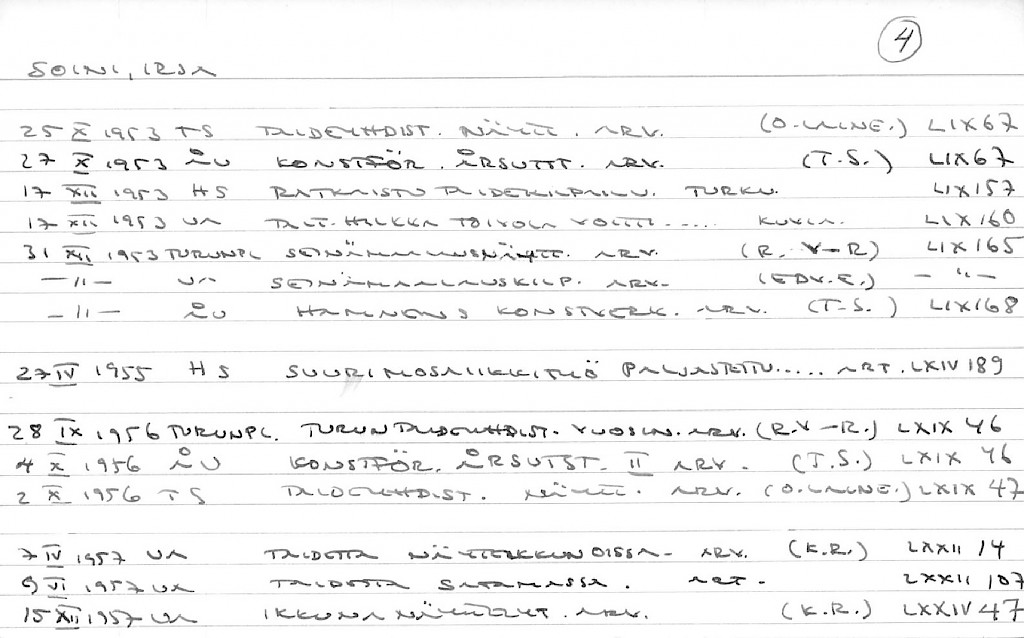 4
SOINI, IRJA
25 X 1953 TS TAIDEYHDIST. NÄYTT. ARV. (O. LAINE.) LIX 67
27 X 1953 ÅU KONSTFÖR. ÅRSUTST. ARV. (T.S.) LIX 67
17 XII 1953 HS RATKAISTU TAIDEKILPAILU. TURKU. LIX 157
17 XII 1953 UA TAIT. HILKKA TOIVOLA VOITTI..... KUVIA. LIX 160
31 XII 1953 TURUNPL SEINÄMAALAUSNÄYTT. ARV. (R. V-R) LIX 165
—"— UA SEINÄMAALAUSKILP. ARV. (EDV. E.) —"—
—"— ÅU HAMNENS KONSTVERK. ARV. (T.S.) LIX 168
27 IV 1955 HS SUURI MOSAIIKKITYÖ PALJASTETTU..... ART. LXIV 189
28 IX 1956 TURUNPL. TURUN TAIDEYHDIST. VUOSIN. ARV. (R.V-R.) LXIX 46
4 X 1956 ÅU KONSTFÖR. ÅRSUTST. II ARV. (T.S.) LXIX 46
2 X 1956 TS TAIDEYHDIST. NÄYTT. ARV. (O. LAINE.) LXIX 47
7 IV 1957 UA TAIDETTA NÄYTEIKKUNOISSA- ARV. (K.R.) LXXII 14
9 VI 1957 UA TAIDETTA SATAMASSA. ART. LXXII 107
15 XII 1957 UA IKKUNANÄYTTELYT. ARV. (K.R.) LXXIV 47